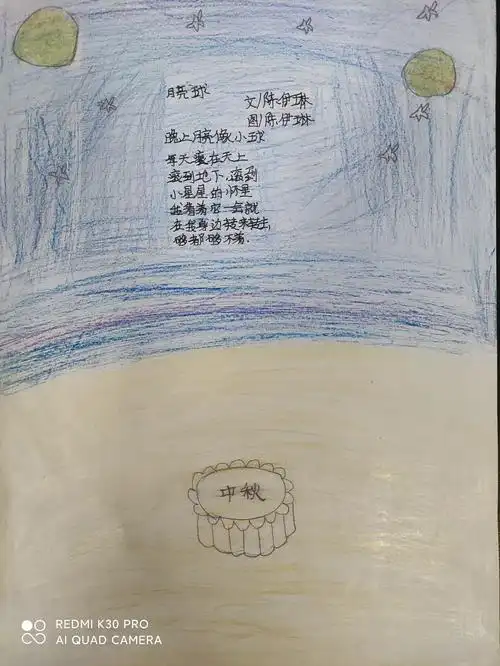 月亮"球"
文/陈伊琳
图/陈伊琳
晚上月亮像小球
每天滚在天上
滚到地下,滚到
小星星的怀里
看着它一会就
在我身边
够都够不着.
中秋
REDMI K30 PRO
AI QUAD CAMERA